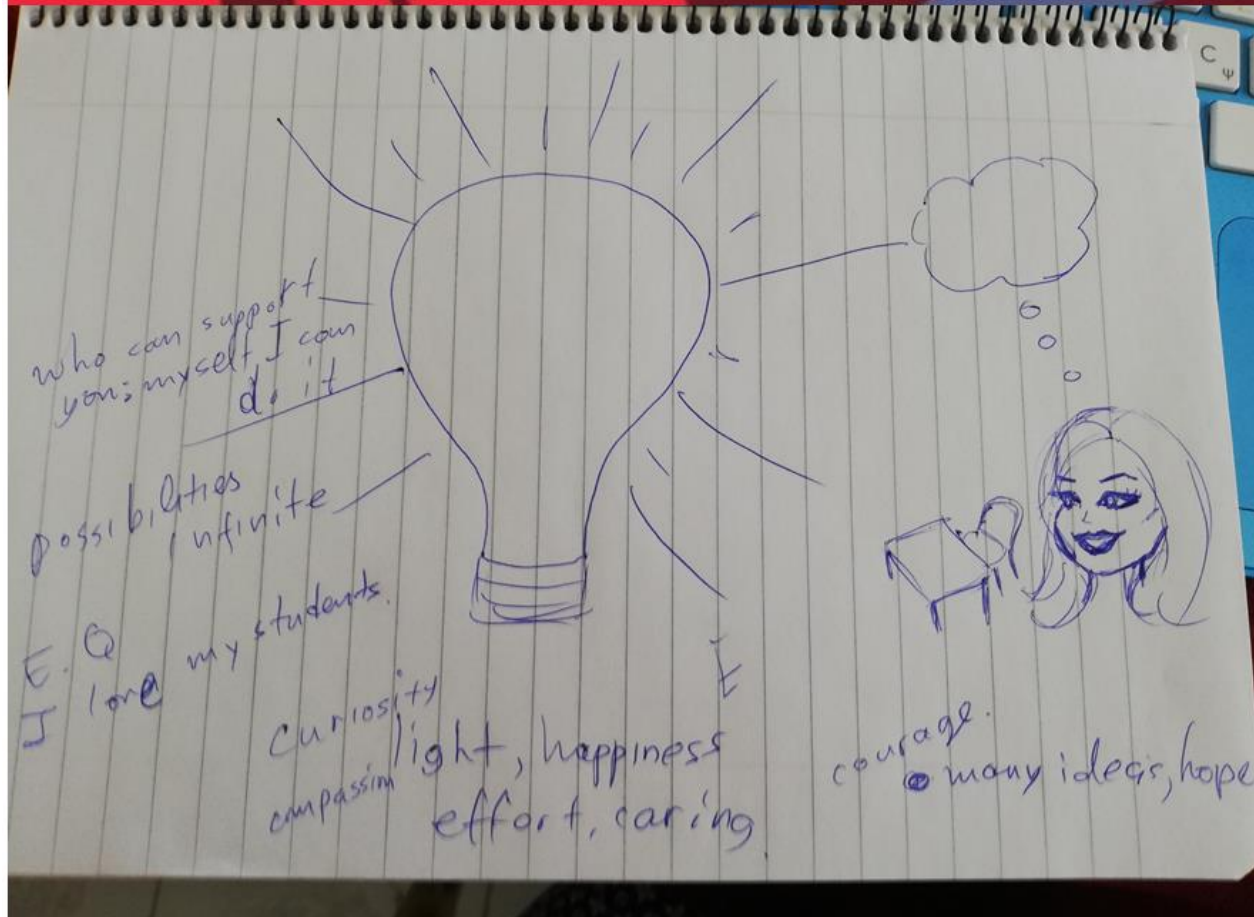 who can support
you; myself I can
do it
possibilities
infinite
E.Q
I love my students.
curiosity
compassion
light, happiness
effort, caring
courage.
many ideas, hope
C
ψ